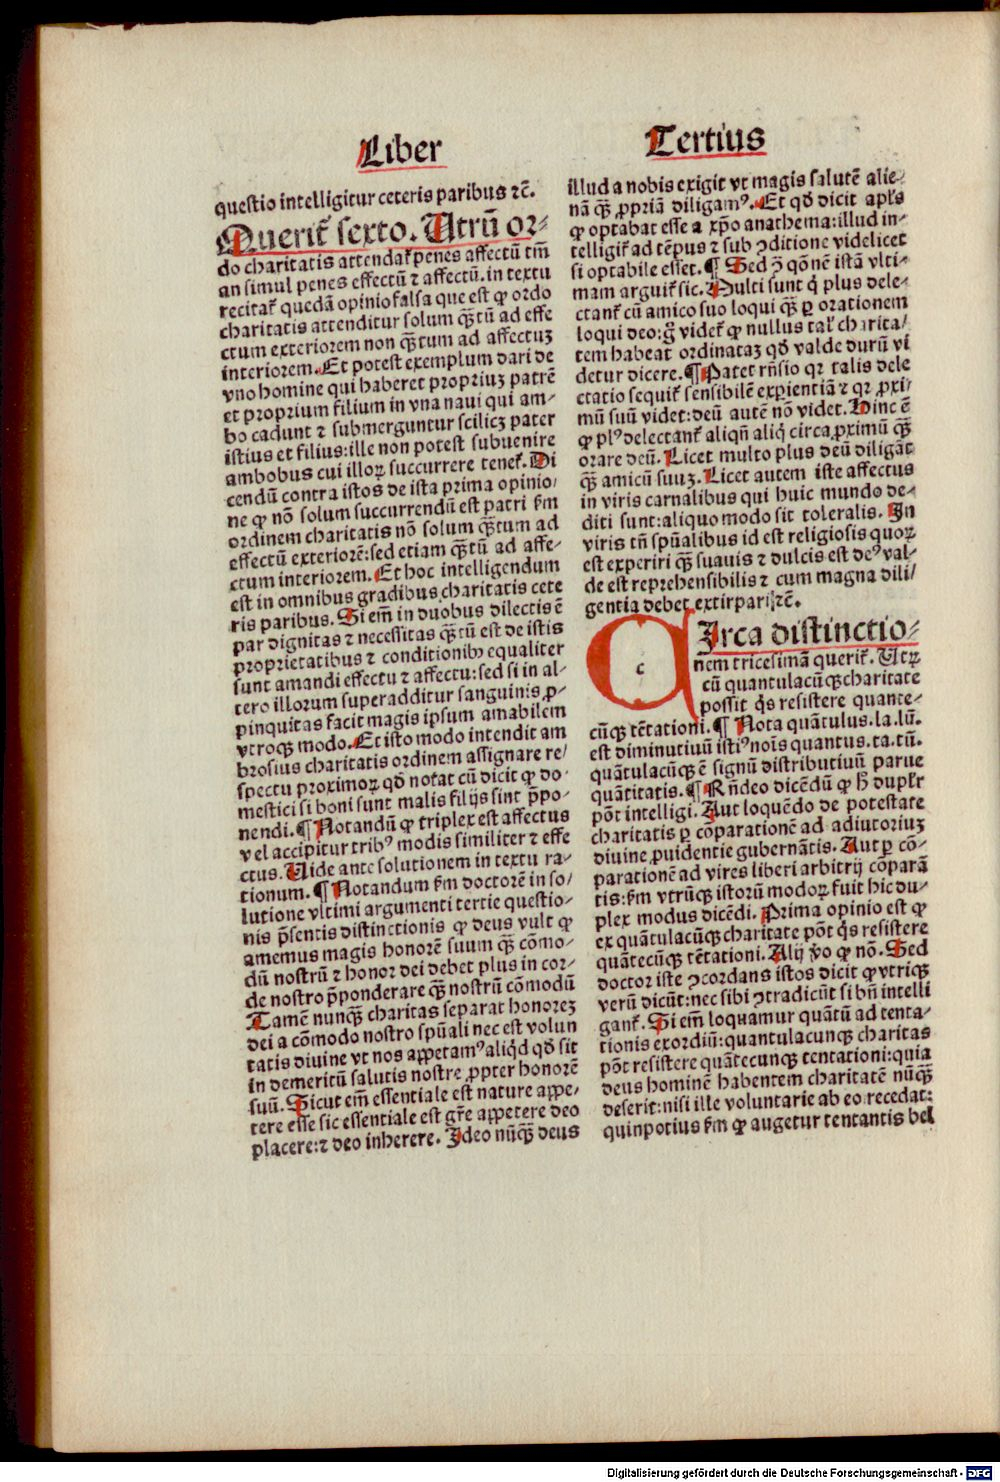 Liber
questio intelligitur ceteris paribus ⁊c̄.
Querit᷑ sexto. Utrū or⸗
do charitatis attendat᷑ penes affectū tm̄
an simul penes effectū ⁊ affectū. in textu
recitat᷑ quedā opinio falsa que est ꝙ ordo
charitatis attenditur solum qꝫ̄tū ad effe
ctum exteriorem non qꝫ̄tum ad affectuꝫ
interiorem. Et potest exemplum dari de
vno homine qui haberet propriuꝫ patrē
et proprium filium in vna naui qui am⸗
bo cadunt ⁊ submerguntur scilicꝫ pater
istius et filius: ille non potest subuenire
ambobus cui illoꝝ succurrere tenet᷑. Di
cendū contra istos de ista prima opinio⸗
ne ꝙ nō solum succurrendū est patri ẜm
ordinem charitatis nō solum qꝫ̄tum ad
effectū exteriorē: sed etiam qꝫ̄tū ad affe⸗
ctum interiorem. Et hoc intelligendum
est in omnibus gradibus charitatis cete
ris paribus. Si em̄ in duobus dilectis ē
par dignitas ⁊ necessitas qꝫ̄tū est de istis
proprietatibus ⁊ conditionibꝰ equaliter
sunt amandi effectu ⁊ affectu: sed si in al⸗
tero illorum superadditur sanguinis ꝓ⸗
pinquitas facit magis ipsum amabilem
vtroqꝫ modo. Et isto modo intendit am
brosius charitatis ordinem assignare re/
spectu proximoꝝ qd̄ notat cū dicit ꝙ do⸗
mestici si boni sunt malis filijs sint p̄po⸗
nendi. ¶ Notandū ꝙ triplex est affectus
vel accipitur tribꝰ modis similiter ⁊ effe
ctus. Vide ante solutionem in textu ra⸗
tionum. ¶ Notandum ẜm doctorē in so/
lutione vltimi argumenti tertie questio⸗
nis p̄sentis distinctionis ꝙ deus vult ꝙ
amemus magis honorē suum qꝫ̄ cōmo⸗
dū nostrū ⁊ honor dei debet plus in cor⸗
de nostro p̄ponderare qꝫ̄ nostrū cōmodū
Tamē nunqꝫ̄ charitas separat honoreꝫ
dei a cōmodo nostro spūali nec est volun
tatis diuine vt nos appetamꝰ aliqd qd̄ sit
in demeritū salutis nostre ꝓpter honorē
suū. Sicut em̄ essentiale est nature appe⸗
tere esse sic essentiale est gr̄e appetere deo
placere: ⁊ deo inherere. Ideo nūqꝫ̄ deus
Tertius
illud a nobis exigit vt magis salutē alie⸗
nā qꝫ̄ ꝓpriā diligamꝰ. Et qd̄ dicit apl̄s
ꝙ optabat esse a xp̄o anathema: illud in⸗
telligit᷑ ad tēpus ⁊ sub ꝯditione videlicet
si optabile esset. ¶ Sed ꝯ̄ qōnē istā vlti⸗
mam arguit᷑ sic. Multi sunt q̇ plus dele⸗
ctant᷑ cū amico suo loqui qꝫ̄ ꝑ orationem
loqui deo: g̊ videt᷑ ꝙ nullus tal᷑ charita/
tem habeat ordinataꝫ qd̄ valde durū vi
detur dicere. ¶ Patet rn̄sio qꝛ talis dele
ctatio sequit᷑ sensibilē exꝑientiā ⁊ qꝛ ꝓxi⸗
mū suū videt: deū autē nō videt. Hinc ē
ꝙ plꝰ delectant᷑ aliqn̄ aliq̇ circa ꝓximū qꝫ̄
orare deū. Licet multo plus deū diligāt
qꝫ̄ amicū suuꝫ. Licet autem iste affectus
in viris carnalibus qui huic mundo de⸗
diti sunt: aliquo modo sit toleralis. In
viris tn̄ spūalibus id est religiosis quoꝝ
est experiri qꝫ̄ suauis ⁊ dulcis est deꝰ val⸗
de est reprehensibilis ⁊ cum magna dili/
gentia debet extirpari ⁊c̄.
c
CIrca distinctio⸗
nem tricesimā querit᷑. Utꝝ
cū quantulacūqꝫ charitate
possit q̇s resistere quante⸗
cūqꝫ tētationi. ¶ Nota quātulus. la. lū.
est diminutiuū istiꝰ noīs quantus. ta. tū.
quātulacūqꝫ ē signū distributiuū parue
quātitatis. ¶ Rn̄deo dicēdū ꝙ h̄ duplr̄
pōt intelligi. Aut loquēdo de potestate
charitatis ꝑ cōparationē ad adiutoriuꝫ
diuine ꝓuidentie gubernātis. Aut ꝑ cō⸗
parationē ad vires liberi arbitrij cōparā
tis: ẜm vtrūqꝫ istorū modoꝝ fuit hic du⸗
plex modus dicēdi. Prima opinio est ꝙ
ex quātulacūqꝫ charitate pōt q̇s resistere
quātecūqꝫ tētationi. Alij v̄o ꝙ nō. Sed
doctor iste ꝯcordans istos dicit ꝙ vtriqꝫ
verū dicūt: nec sibi ꝯtradicūt si bn̄ intelli
gant᷑. Si em̄ loquamur quātū ad tenta⸗
tionis exordiū: quantulacunqꝫ charitas
pōt resistere quātecunqꝫ tentationi: quia
deus hominē habentem charitatē nūqꝫ̄
deserit: nisi ille voluntarie ab eo recedat:
quinpotius ẜm ꝙ augetur tentantis bel
Digitalisierung gefördert durch die Deutsche Forschungsgemeinschaft - DFG